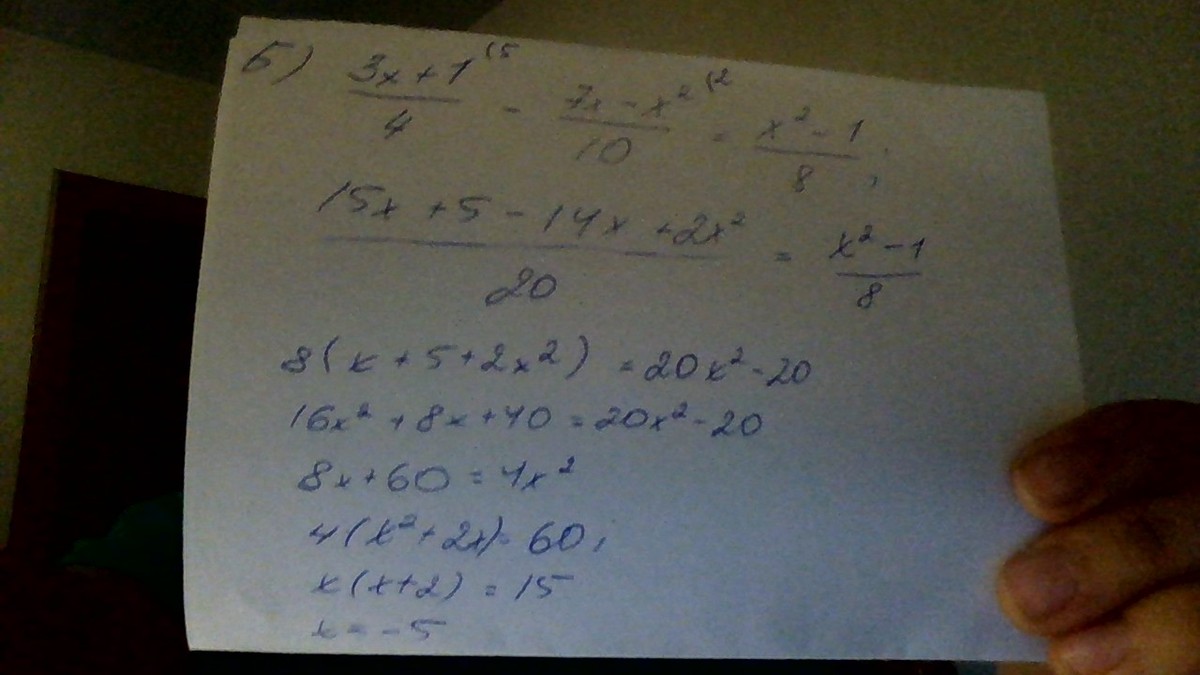 б) (3x+1)/4 ⁽⁵ - (7x-x²)/10 ⁽² = (x²-1)/8 ;
(15x+5-14x+2x²)/20 = (x²-1)/8
8(x+5+2x²) = 20x²-20
16x²+8x+40=20x²-20
8x+60=4x²
4(x²+2x)=60;
x(x+2)=15
x=-5